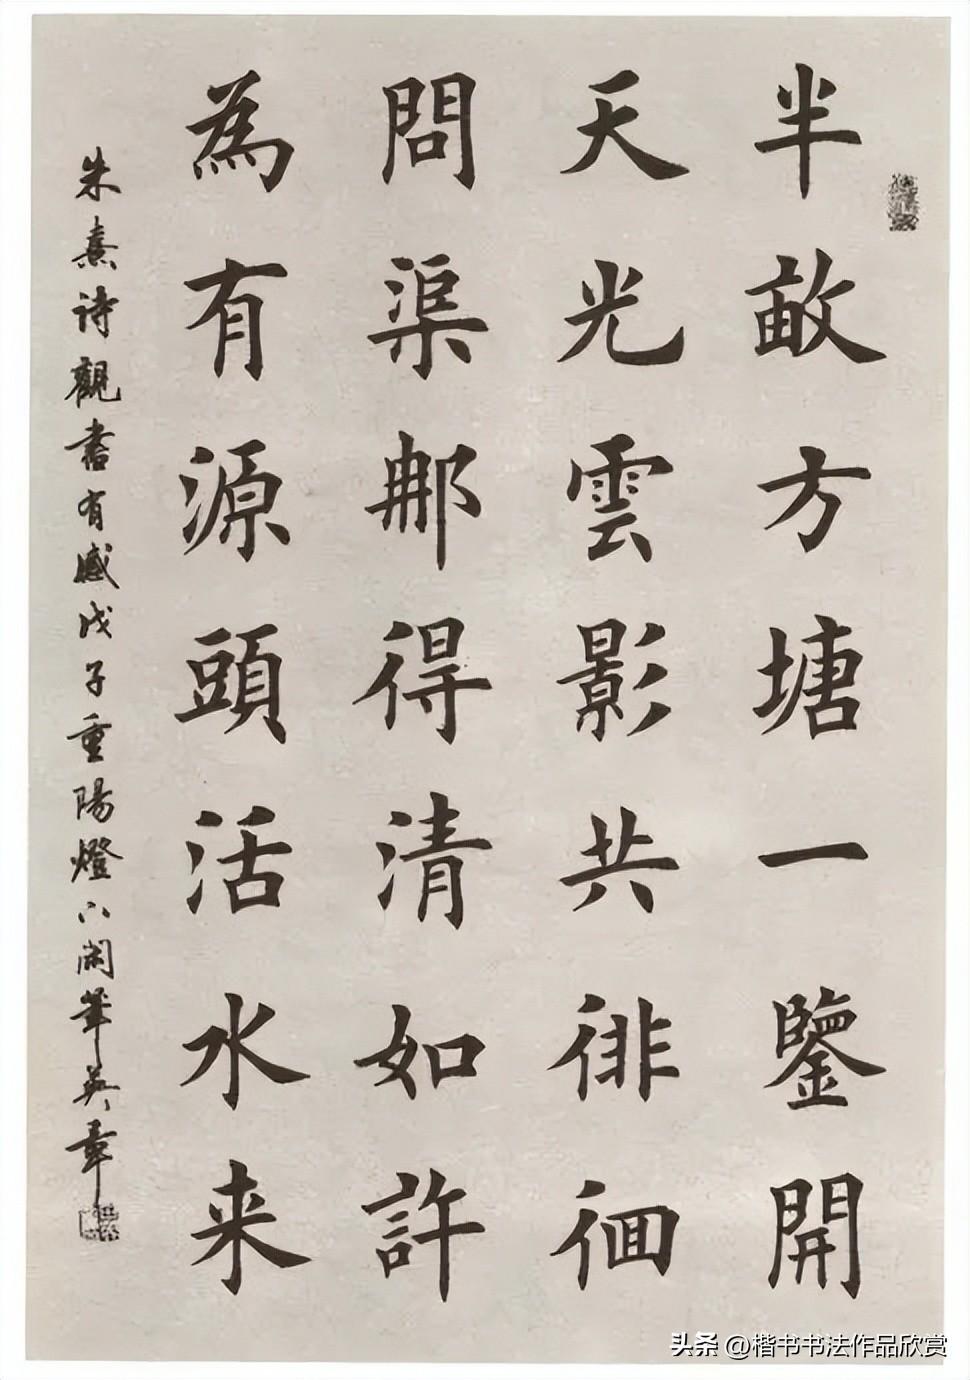 半畝方塘一鑒開
天光雲影共徘徊
問渠那得清如許
為有源頭活水来
朱熹诗觀書有感戊子重陽燈下閑筆英章
头条 @楷书书法作品欣赏